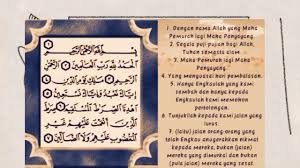 بِسْمِ اللَّهِ الرَّحْمَٰنِ الرَّحِيمِ
الْحَمْدُ لِلَّهِ رَبِّ الْعَالَمِينَ
الرَّحْمَٰنِ الرَّحِيمِ مَالِكِ يَوْمِ الدِّينِ
إِيَّاكَ نَعْبُدُ وَإِيَّاكَ نَسْتَعِينُ
اهْدِنَا الصِّرَاطَ الْمُسْتَقِيمَ
صِرَاطَ الَّذِينَ أَنْعَمْتَ عَلَيْهِمْ غَيْرِ
الْمَغْضُوبِ عَلَيْهِمْ وَلَا الضَّالِّينَ
1. Dengan nama Allah yang Maha
Pemurah lagi Maha Penyayang.
2. Segala puji-pujian bagi Allah,
Tuhan semesta alam.
3. Maha Pemurah lagi Maha
Penyayang.
4. Yang menguasai hari pembalasan.
5. Hanya Engkaulah yang kami
sembah dan hanya kepada
Engkaulah kami memohon
pertolongan.
6. Tunjukilah kepada kami jalan
yang lurus.
7. (Iaitu) jalan orang-orang yang
telah Engkau anugerahkan nikmat
kepada mereka, bukan (jalan)
mereka yang dimurkai dan bukan
(pula) jalan mereka yang sesat.